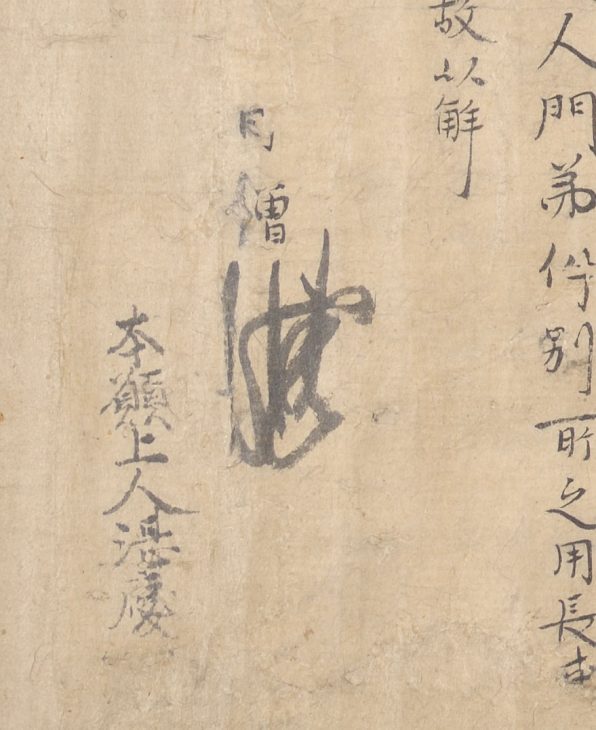 人門弟件別所之用長
故以解
僧
本願上人湛慶